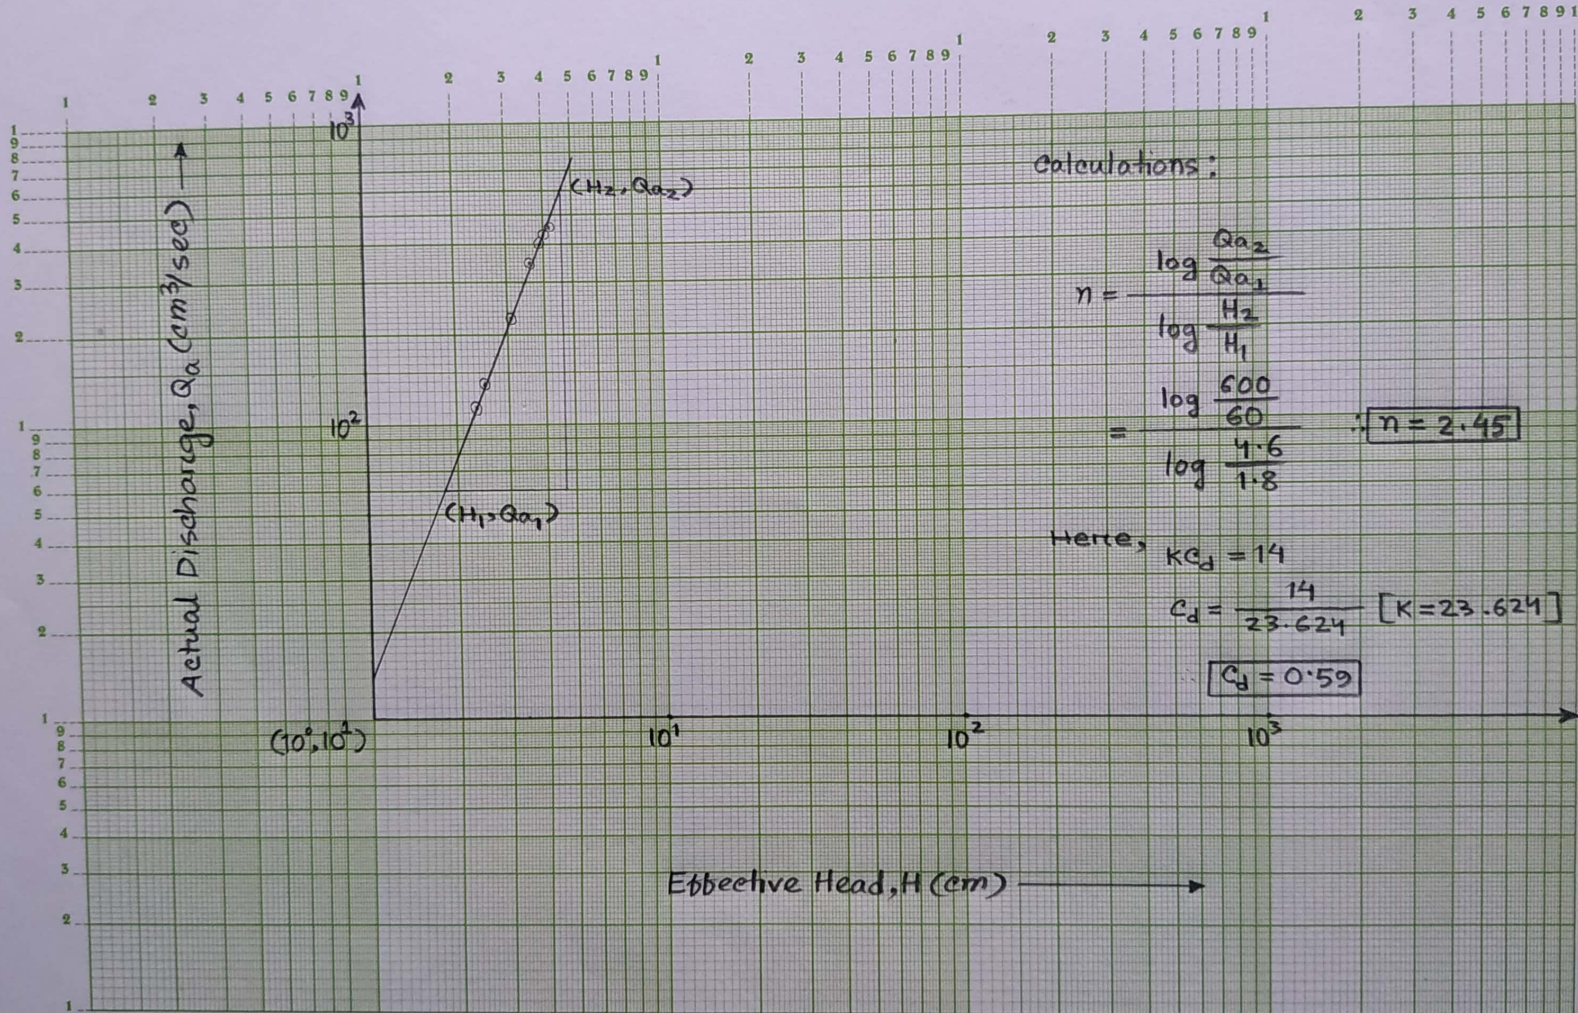 1 2 3 4 5 6 7 8 9 1 2 3 4 5 6 7 8 9 1 2 3 4 5 6 7 8 9 1 2 3 4 5 6 7 8 9 1 2 3 4 5 6 7 8 9 1
1
9
8
7
6
5
4
3
2
1
9
8
7
6
5
4
3
2
1
9
8
7
6
5
4
3
2
1
Actual Discharge, Qa (cm³/sec)
10³
10²
(H₂, Qa₂)
(H₁, Qa₁)
(10⁰, 10¹)
10¹
10²
10³
Effective Head, H (cm)
Calculations:
n = log Qa₂/Qa₁ / log H₂/H₁
= log 600/60 / log 4.6/1.8
∴ n = 2.45
Here,
KCd = 14
Cd = 14/23.624 [K=23.624]
Cd = 0.59